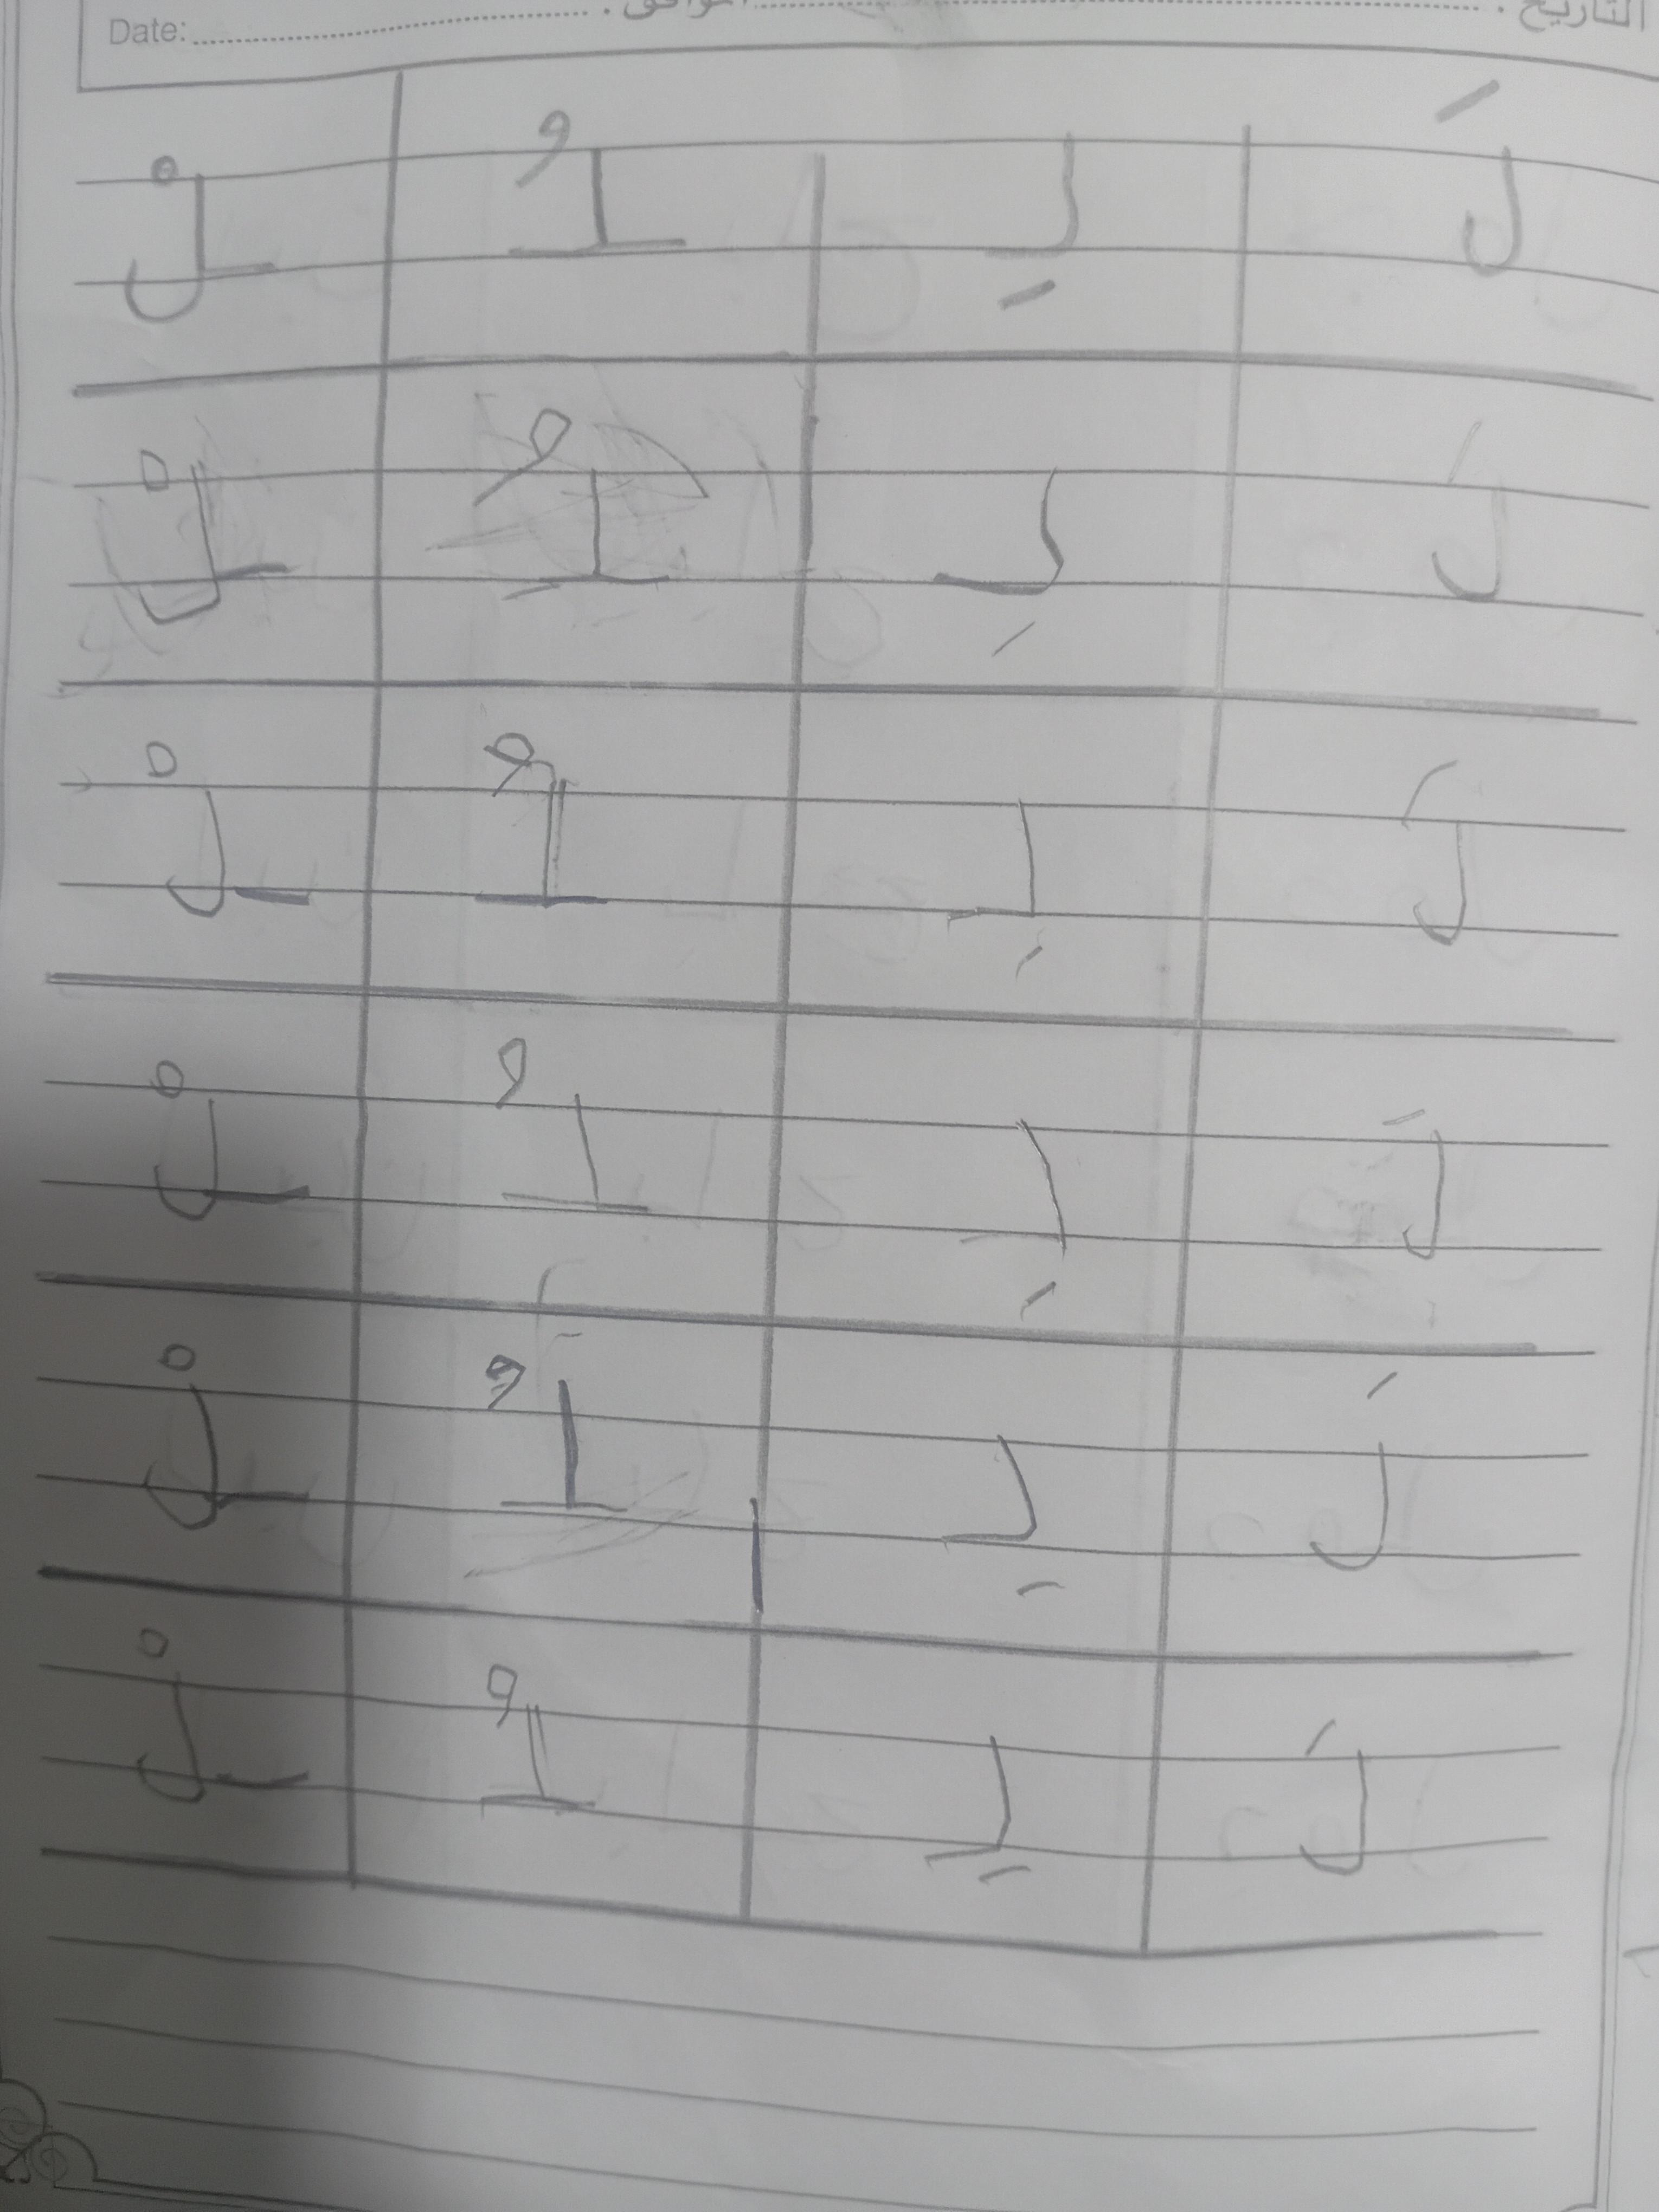 التاريخ : الموافق : Date:
لَ لِـ ـلُـ ـلْ
لَ لِـ ـلُـ ـلْ
لَ لِـ ـلُـ ـلْ
لَ لِـ ـلُـ ـلْ
لَ لِـ ـلُـ ـلْ
لَ لِـ ـلُـ ـلْ